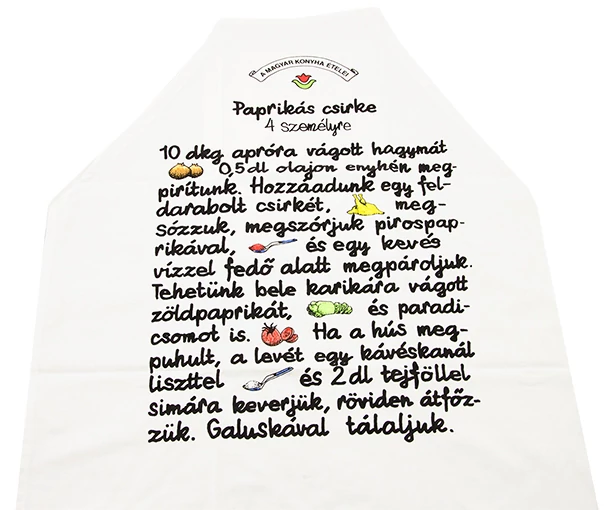 A MAGYAR KONYHA ÉTELEI
Paprikás csirke
4 személyre
10 dkg apróra vágott hagymát
0,5 dl olajon enyhén meg-
pirítunk. Hozzáadunk egy fel-
darabolt csirkét, meg-
sózzuk, megszórjuk pirospap-
rikával, és egy kevés
vízzel fedő alatt megpároljuk.
Tehetünk bele karikára vágott
zöldpaprikát, és paradi-
csomot is. Ha a hús meg-
puhult, a levét egy kávéskanál
liszttel és 2 dl tejföllel
simára keverjük, röviden átfőz-
zük. Galuskával tálaljuk.